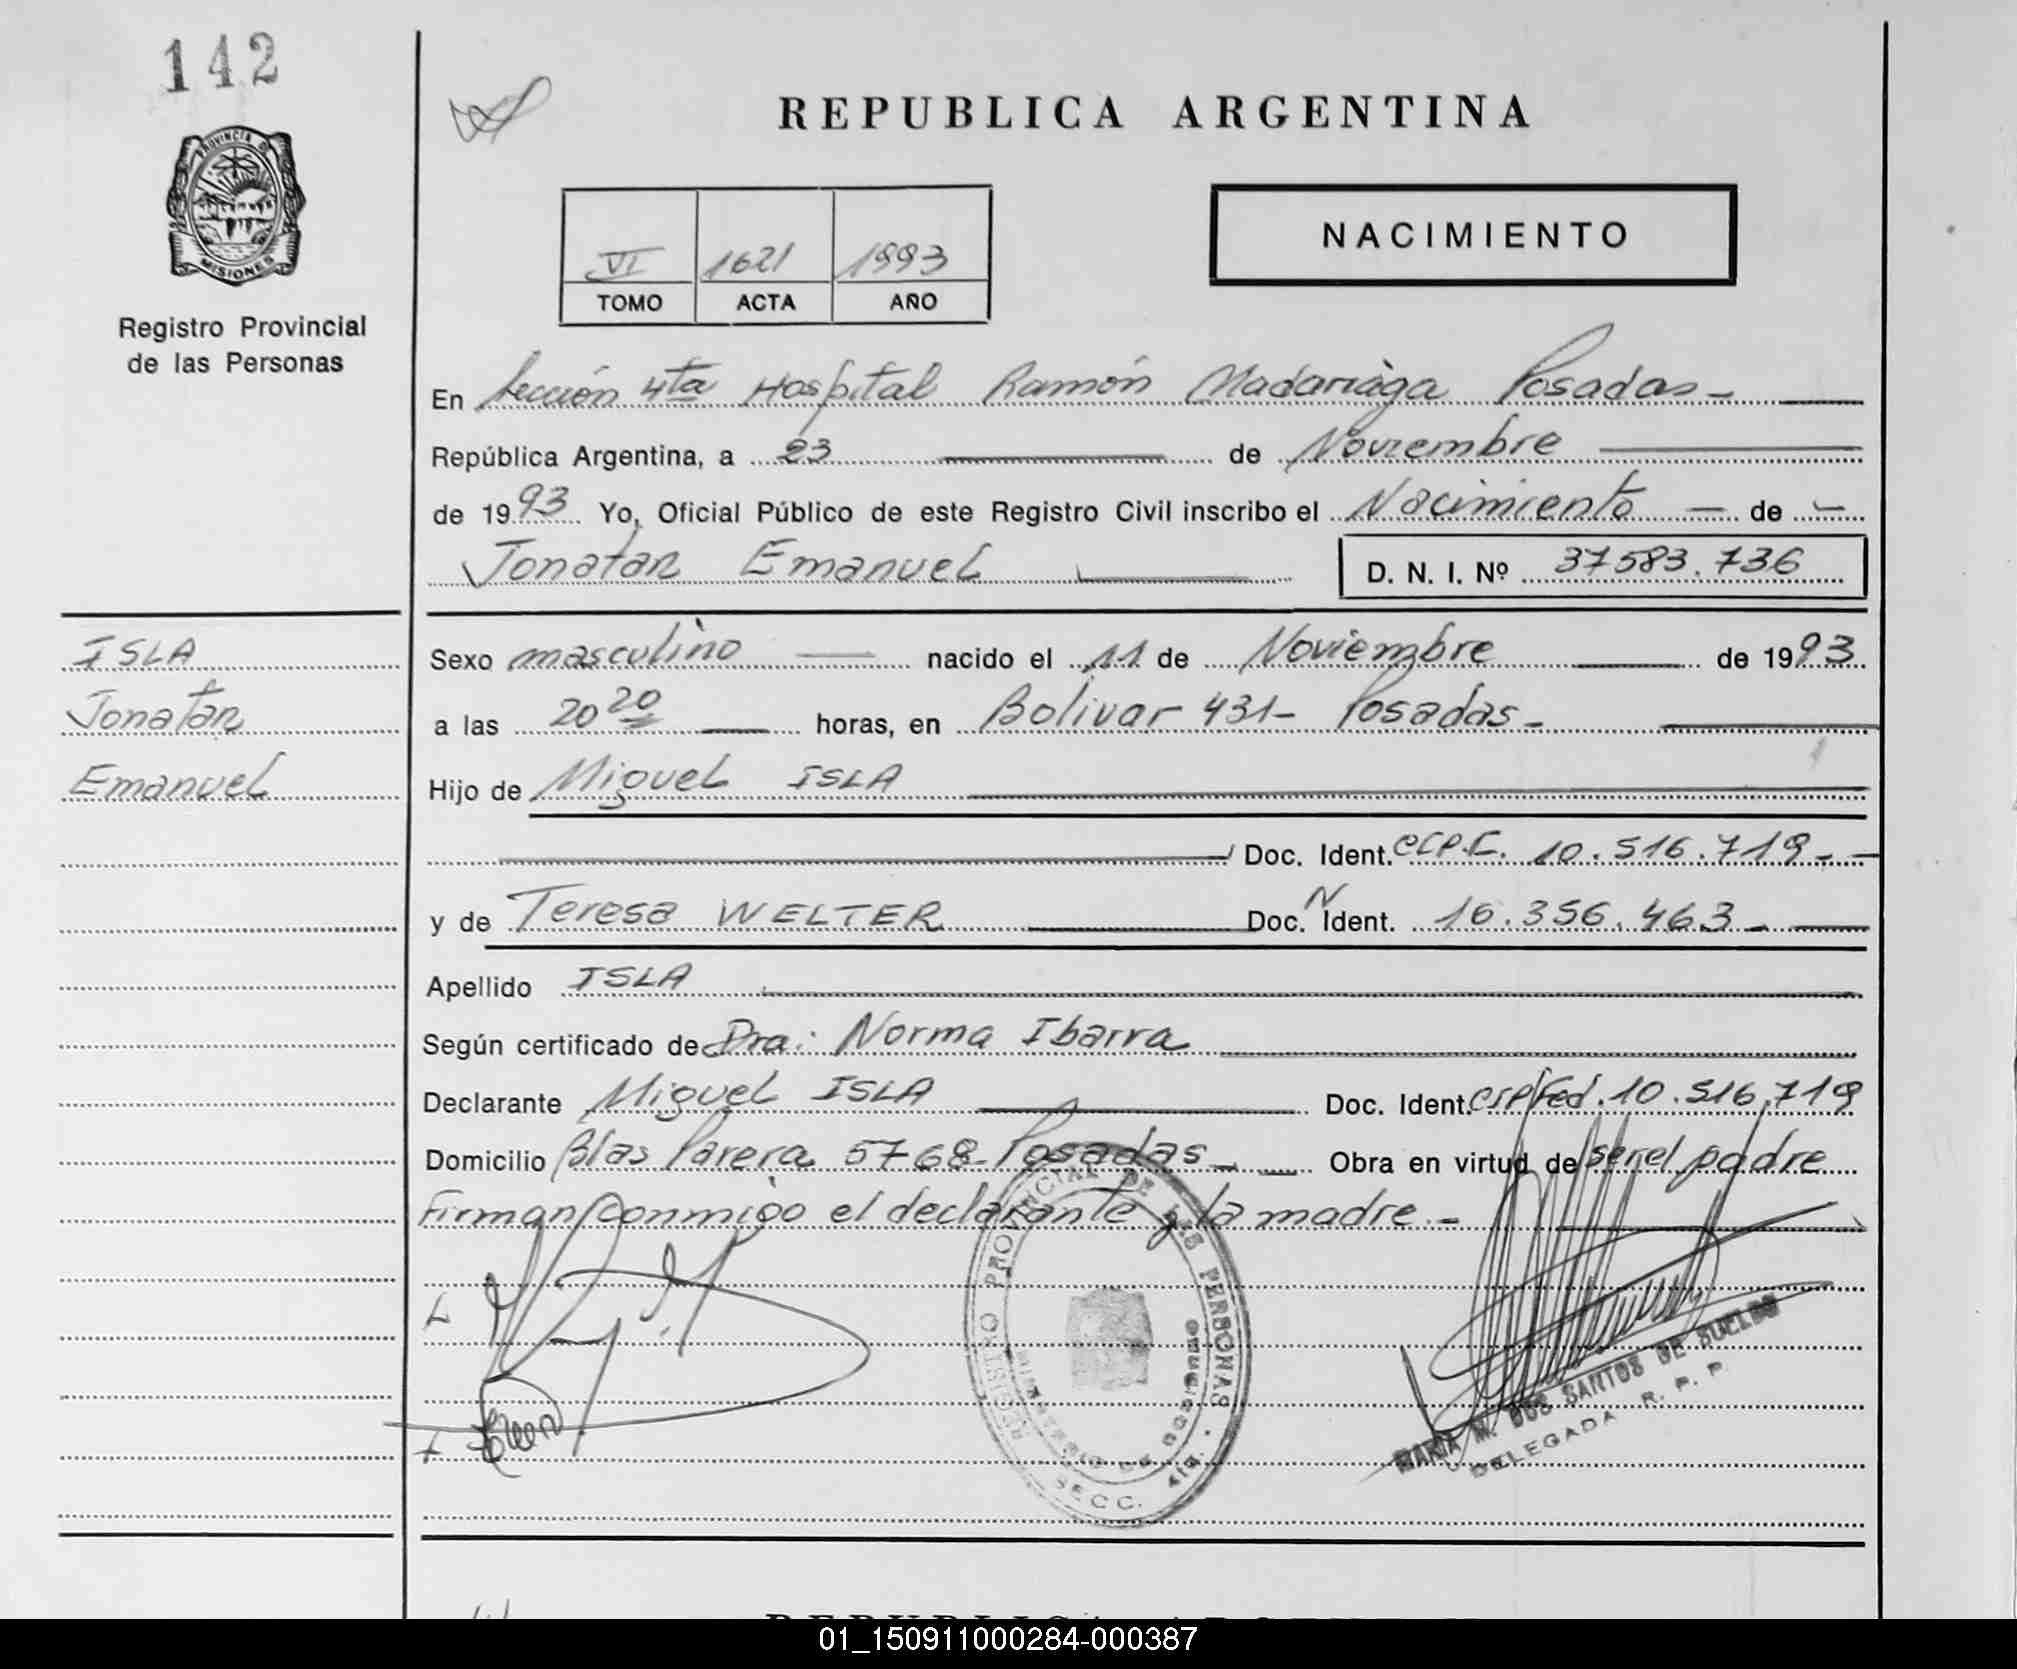 142
PROVINCIA DE
MISIONES
Registro Provincial
de las Personas
REPUBLICA ARGENTINA
VI 1621 1993
TOMO ACTA AÑO
NACIMIENTO
En Sección 4ta Hospital Ramón Madariaga Posadas -
República Argentina, a 23 de Noviembre
de 1993 Yo, Oficial Público de este Registro Civil inscribo el Nacimiento - de -
Jonatan Emanuel D. N. I. Nº 37583.736
ISLA
Jonatan
Emanuel
Sexo masculino nacido el 11 de Noviembre de 1993
a las 20 20 horas, en Bolivar 431- Posadas -
Hijo de Miguel ISLA
Doc. Ident. 10.516.719 -
y de Teresa WELTER Doc. N Ident. 16.356.463 -
Apellido ISLA
Según certificado de Dra: Norma Ibarra
Declarante Miguel ISLA Doc. Ident. 10.516.719
Domicilio Blas Parera 5768 - Posadas - Obra en virtud de ser el padre
Firman conmigo el declarante y la madre -
REGISTRO PROVINCIAL DE LAS PERSONAS
SECC. 4ta.
MARIA M. DOS SANTOS DE SUELDO
DELEGADA R. P. P.
REPUBLICA ARGENTINA
01_150911000284-000387